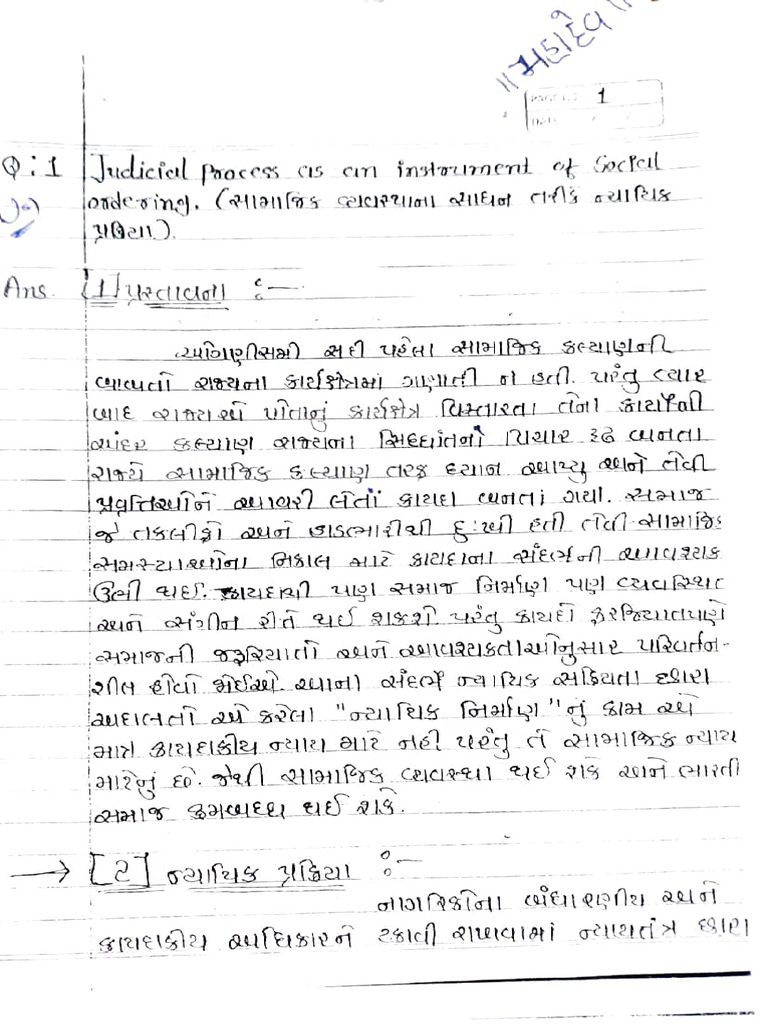 ॥ મહાદેવ ॥
PAGE NO. 1
DATE / /
Q:1 Judicial process as an instrument of Social
ordering. (સામાજિક વ્યવસ્થાના સાધન તરીકે ન્યાયિક
પ્રક્રિયા).
Ans. [1] પ્રસ્તાવના :—
ઓગણીસમી સદી પહેલા સામાજિક કલ્યાણની
બાબતો રાજ્યના કાર્યક્ષેત્રમાં ગણાતી ન હતી. પરંતુ ત્યાર
બાદ રાજ્યએ પોતાનું કાર્યક્ષેત્ર વિસ્તારતા તેના કાર્યોની
અંદર કલ્યાણ રાજ્યના સિધ્ધાંતનો વિચાર રૂઢ બનતા
રાજ્યે સામાજિક કલ્યાણ તરફ ધ્યાન આપ્યુ અને તેવી
પ્રવૃત્તિઓને આવરી લેતાં કાયદા બનતાં ગયા. સમાજ
જે તકલીફો અને હાડમારીથી દુ:ખી હતી તેવી સામાજિક
સમસ્યાઓના નિકાલ માટે કાયદાના સંદર્ભની આવશ્યક
ઉભી થઈ. કાયદાથી પણ સમાજ નિર્માણ પણ વ્યવસ્થિત
અને સંગીન રીતે થઈ શકશે. પરંતુ કાયદો ફરજિયાતપણે
સમાજની જરૂરિયાતો અને આવશ્યકતાઓનુસાર પરિવર્તન-
શીલ હોવો જોઈએ. આના સંદર્ભે ન્યાયિક સક્રિયતા દ્વારા
અદાલતો એ કરેલા "ન્યાયિક નિર્માણ" નું કામ એ
માત્ર કાયદાકીય ન્યાય માટે નહી પરંતુ તે સામાજિક ન્યાય
માટેનું છે. જેથી સામાજિક વ્યવસ્થા થઈ શકે અને ભારતી
સમાજ ક્રમબધ્ધ થઈ શકે.
→ [2] ન્યાયિક પ્રક્રિયા :—
નાગરિકોના બંધારણીય અને
કાયદાકીય અધિકારને ટકાવી રાખવામાં ન્યાયતંત્ર દ્વારા